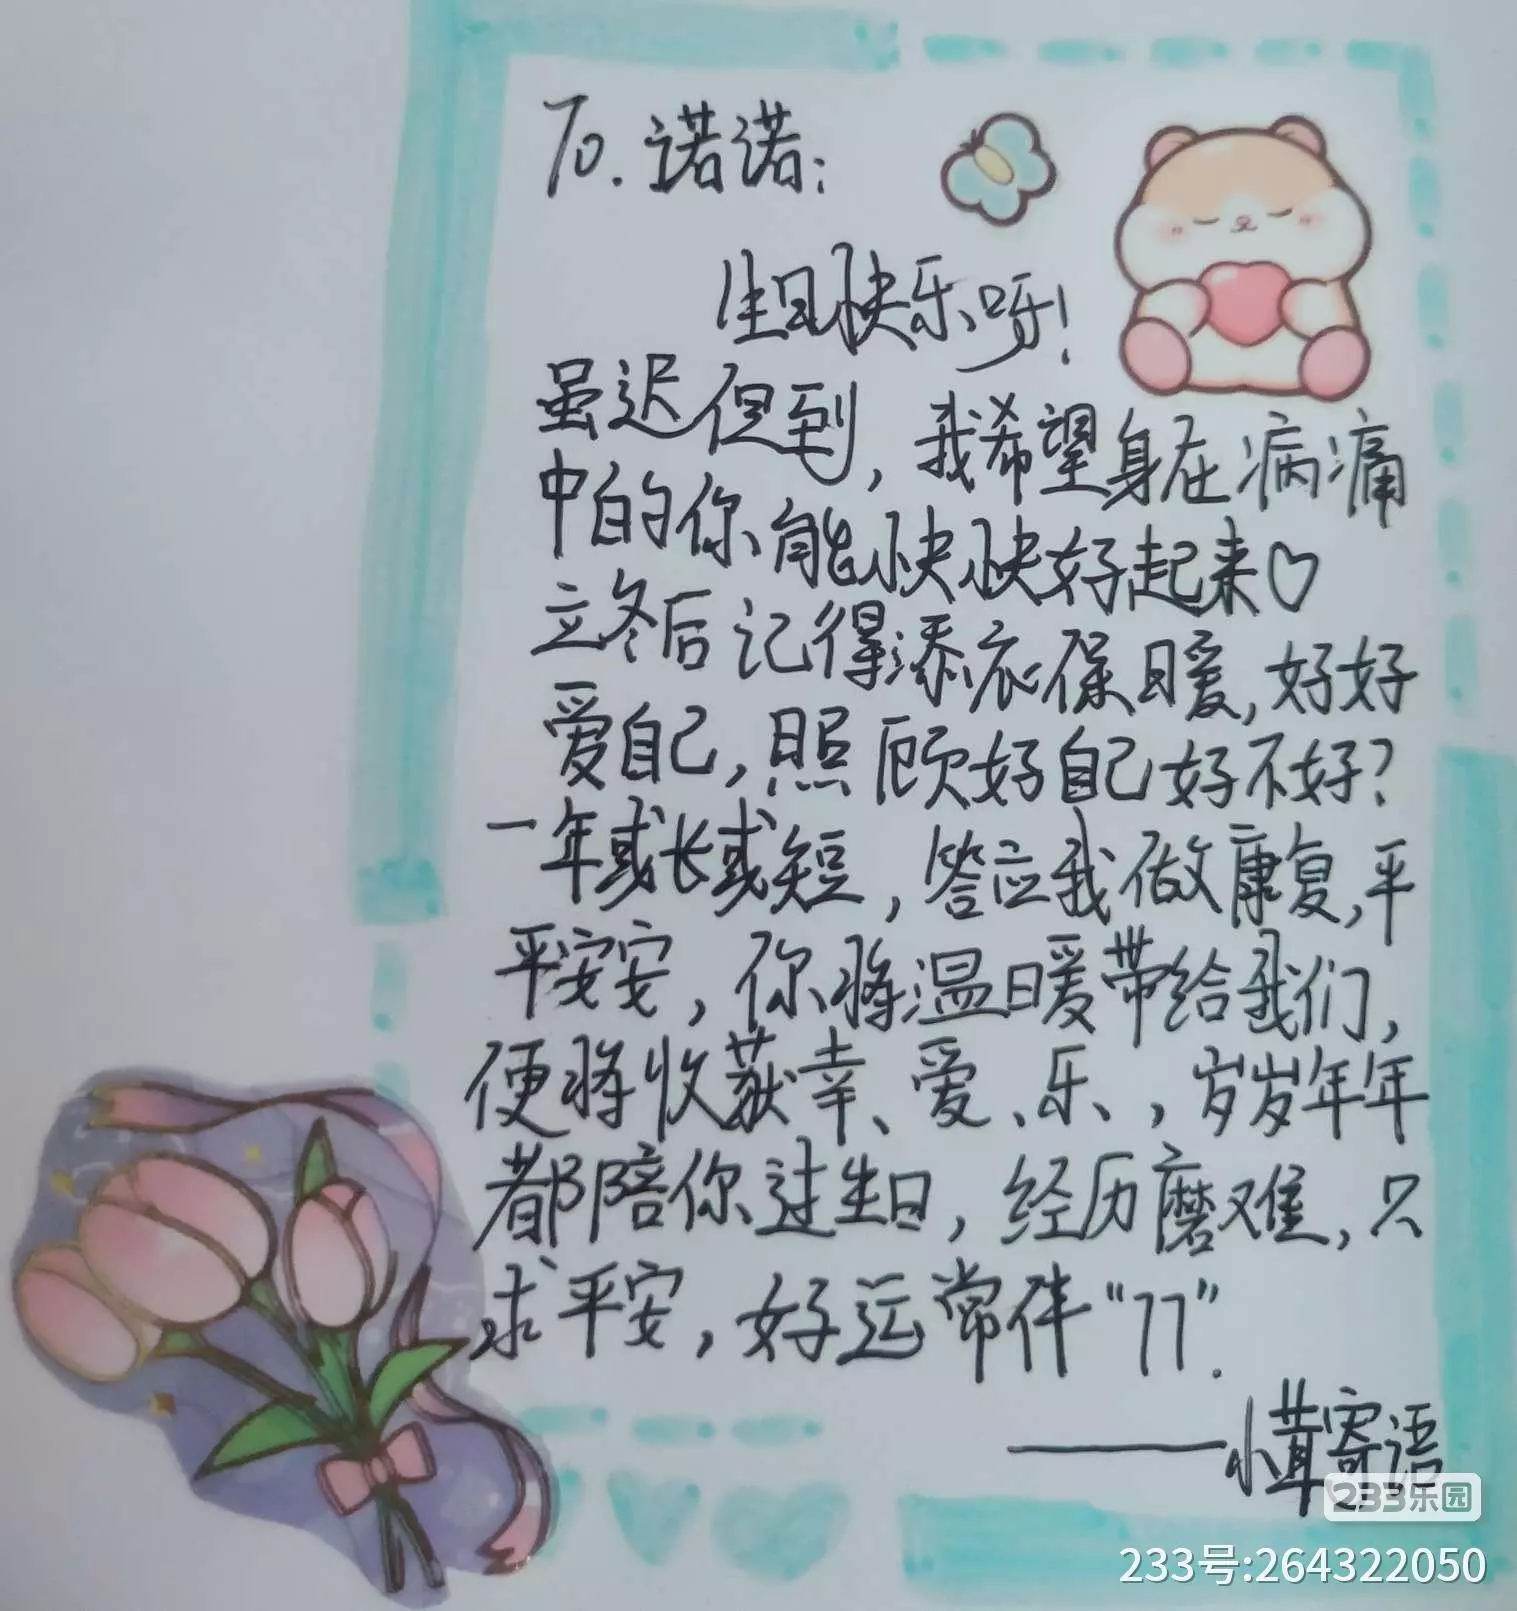 To. 诺诺:
生日快乐呀!
虽迟但到,我希望身在病痛
中的你能快快好起来♡
立冬后记得添衣保暖,好好
爱自己,照顾好自己好不好?
一年或长或短,答应我做康复,平
平安安,你将温暖带给我们,
便将收获幸、爱、乐、,岁岁年年
都陪你过生日,经历磨难,只
求平安,好运常伴“77”.
——小茸寄语
233乐园
233号:264322050